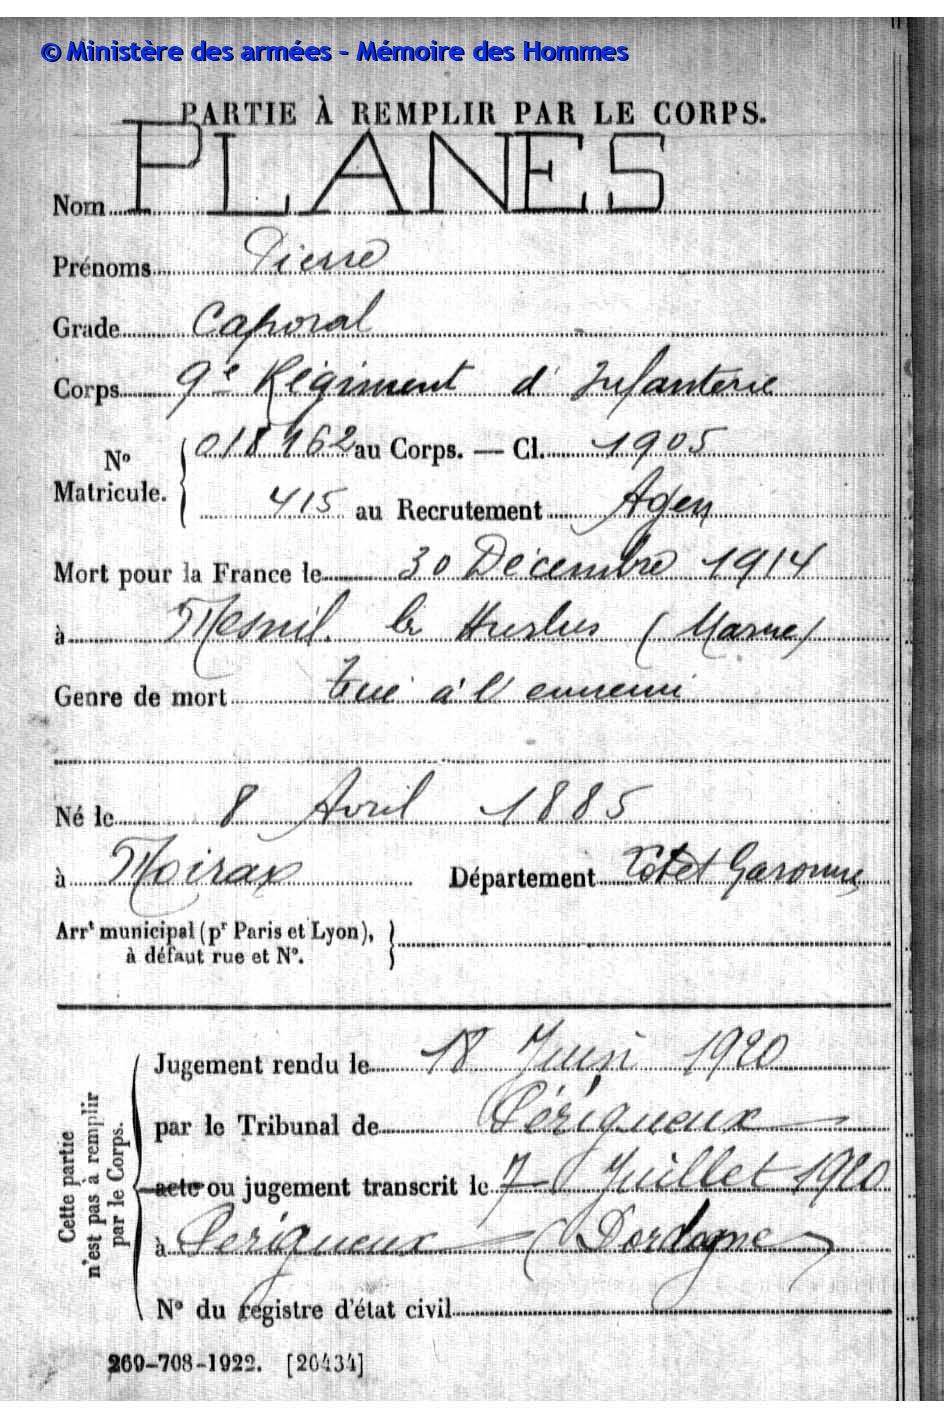 © Ministère des armées - Mémoire des Hommes
PARTIE À REMPLIR PAR LE CORPS.
Nom PLANES
Prénoms Pierre
Grade Caporal
Corps 9e Régiment d'Infanterie
N° Matricule. 018462 au Corps. — Cl. 1905
415 au Recrutement Agen
Mort pour la France le 30 Décembre 1914
à Mesnil le Hurlus (Marne)
Genre de mort tué à l'ennemi
Né le 8 Avril 1885
à Moirax Département Lot et Garonne
Arrt municipal (pr Paris et Lyon),
à défaut rue et N°.
Cette partie
n'est pas à remplir
par le Corps.
Jugement rendu le 18 Juin 1920
par le Tribunal de Périgueux
acte ou jugement transcrit le 7 Juillet 1920
à Perigueux (Dordogne)
N° du registre d'état civil
269-708-1922. [26434]